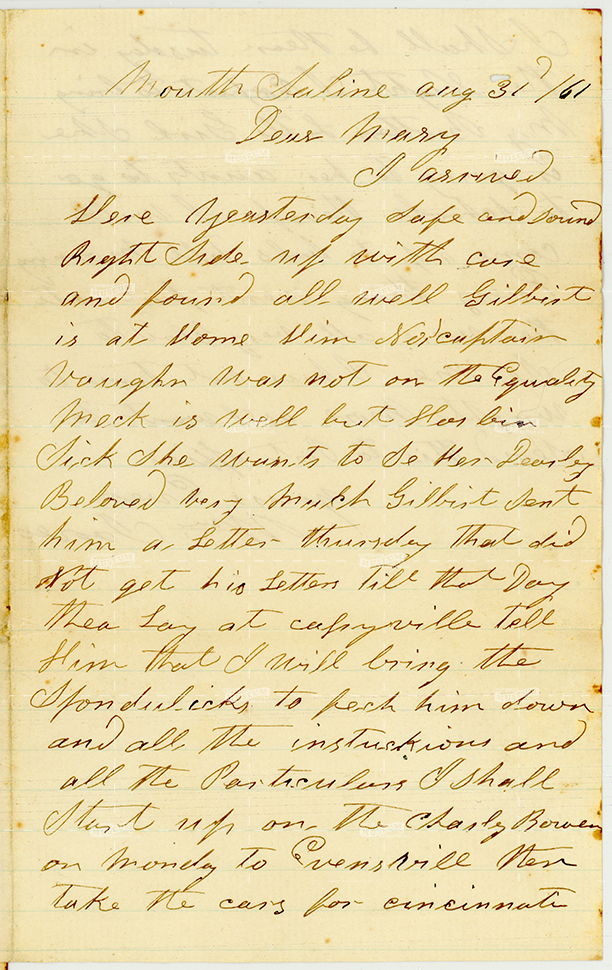 Mouth Saline aug 31 /61
Dear Mary
I arrived
Here Yeasterday Safe and Sound
Right Side up with care
and found all well Gilbirt
is at Home Him No captain
Vaughn was not on the Equality
Meck is well but Has bin
Sick She wants to Se Her Dearley
Beloved very Much Gilbirt Sent
him a Letter thursday that did
Not get his Letters till that Day
thea Lay at caseyville tell
Him that I will bring the
Spondulicks to fech him down
and all the instuckions and
all the Particulars I Shall
Start up on the Charly Bowen
on Monday to Evensvill then
take the cars for cincinnati